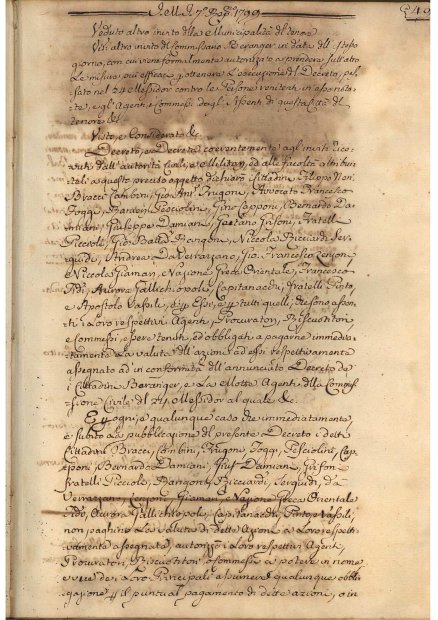 Veduto altro invito della Municipalità del tenore
Vist'altro invito del Commissario Beranger in data dell'istesso
giorno, con cui viene formalmente autorizzato a prendere tutte
Le misure più efficaci p. ottenere L'esecuzione del Decreto,
sato nel 24 Messidor contro Le Persone
te, e gl'Agenti, e Commessi degl'Assenti di questa Città del
tenore &c.
Visto, e Considerato &c.
Decretò, e Decreta coerentemente agl'inviti rice-
vuti dall'autorità Civile, e Militare, ed alle facoltà attribui-
teli a questo preciso oggetto
Bracci Cambini, Gio. Ant. Frugoni, Avvocato Francesco
Foggi, Panciolini, Gino Capponi, Bernardo Da-
miani, Giuseppe Damiani, Gaetano Grifoni, Fratelli
Piccioli, Gio. Batta Bangoni, Niccola Ricciardi Ser-
guidi, Andrea Da Verrazzano, Gio. Francesco
e Niccola Giaman, e Nazione Greca Orientale, Francesco
Aurora Gallichiopolis, Capitanachi, fratelli Pinto,
e Apostolo Vassili, e p. Essi, e p. tutti quelli, che sono assen-
ti i Loro respettivi Agenti, Procuratori, Riscuotitori
e Commessi, essere tenuti, ed obbligati a pagare immedia-
tamente La valuta dell'azione ad essi respettivamente
assegnata in conformità dell'annunciato Decreto de
i Cittadini Beranger, e La Motte Agenti della Commis-
sione Civile del Messidor al quale &c.
E p. ogni, e qualunque caso che immediatamente,
e subito La pubblicazione del presente Decreto i detti
Cittadini Bracci, Cambini, Frugoni, Foggi, Cap-
poni, Bernardo Damiani, Gius. Damiani, Grifoni
fratelli Piccioli, Bangoni, Ricciardi, Serguidi, da
Verrazzano, Giaman, e Nazione Greca Orientale
Aurora Gallichiopolo, Capitanachi, Pinto, e Vassili
non paghino La Valuta di dette Azioni a Loro respetti-
vamente assegnata, autorizzò i Loro respettivi Agenti,
Procuratori, Riscuotitori, o Commessi a potere in nome
e vece dei Loro Principali assumere qualunque obbli-
gazione p. il puntual pagamento di dette azioni, o in